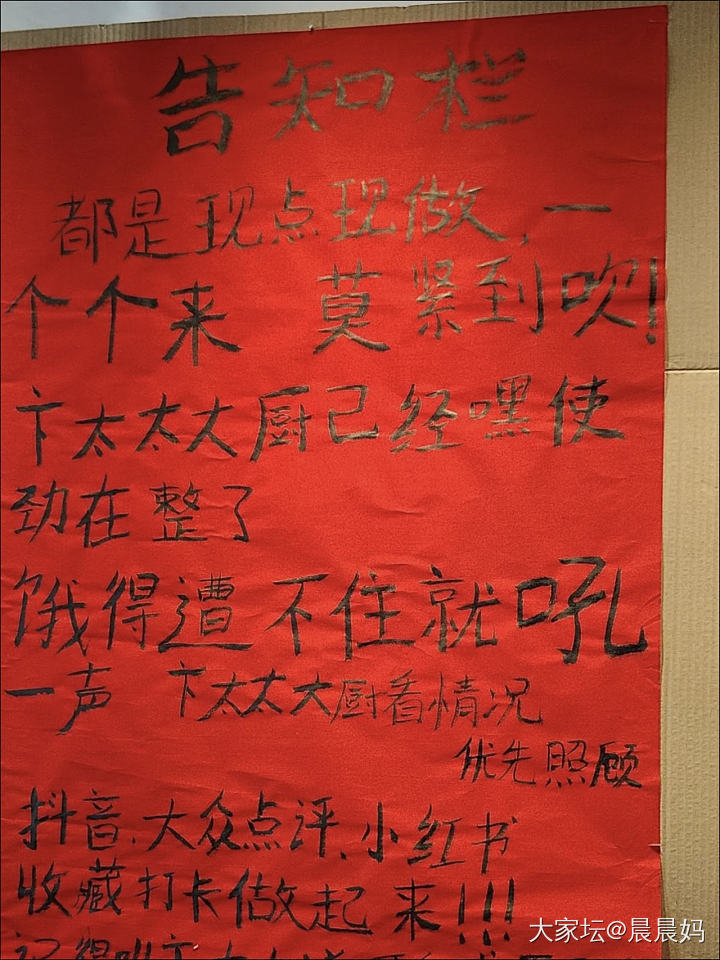 告知栏
都是现点现做，一
个个来 莫紧到吹！
卞太太大厨已经嘿使
劲在整了
饿得遭不住就吼
一声 卞太太大厨看情况
优先照顾
抖音、大众点评、小红书
收藏打卡做起来！！！
记得
大家坛@晨晨妈